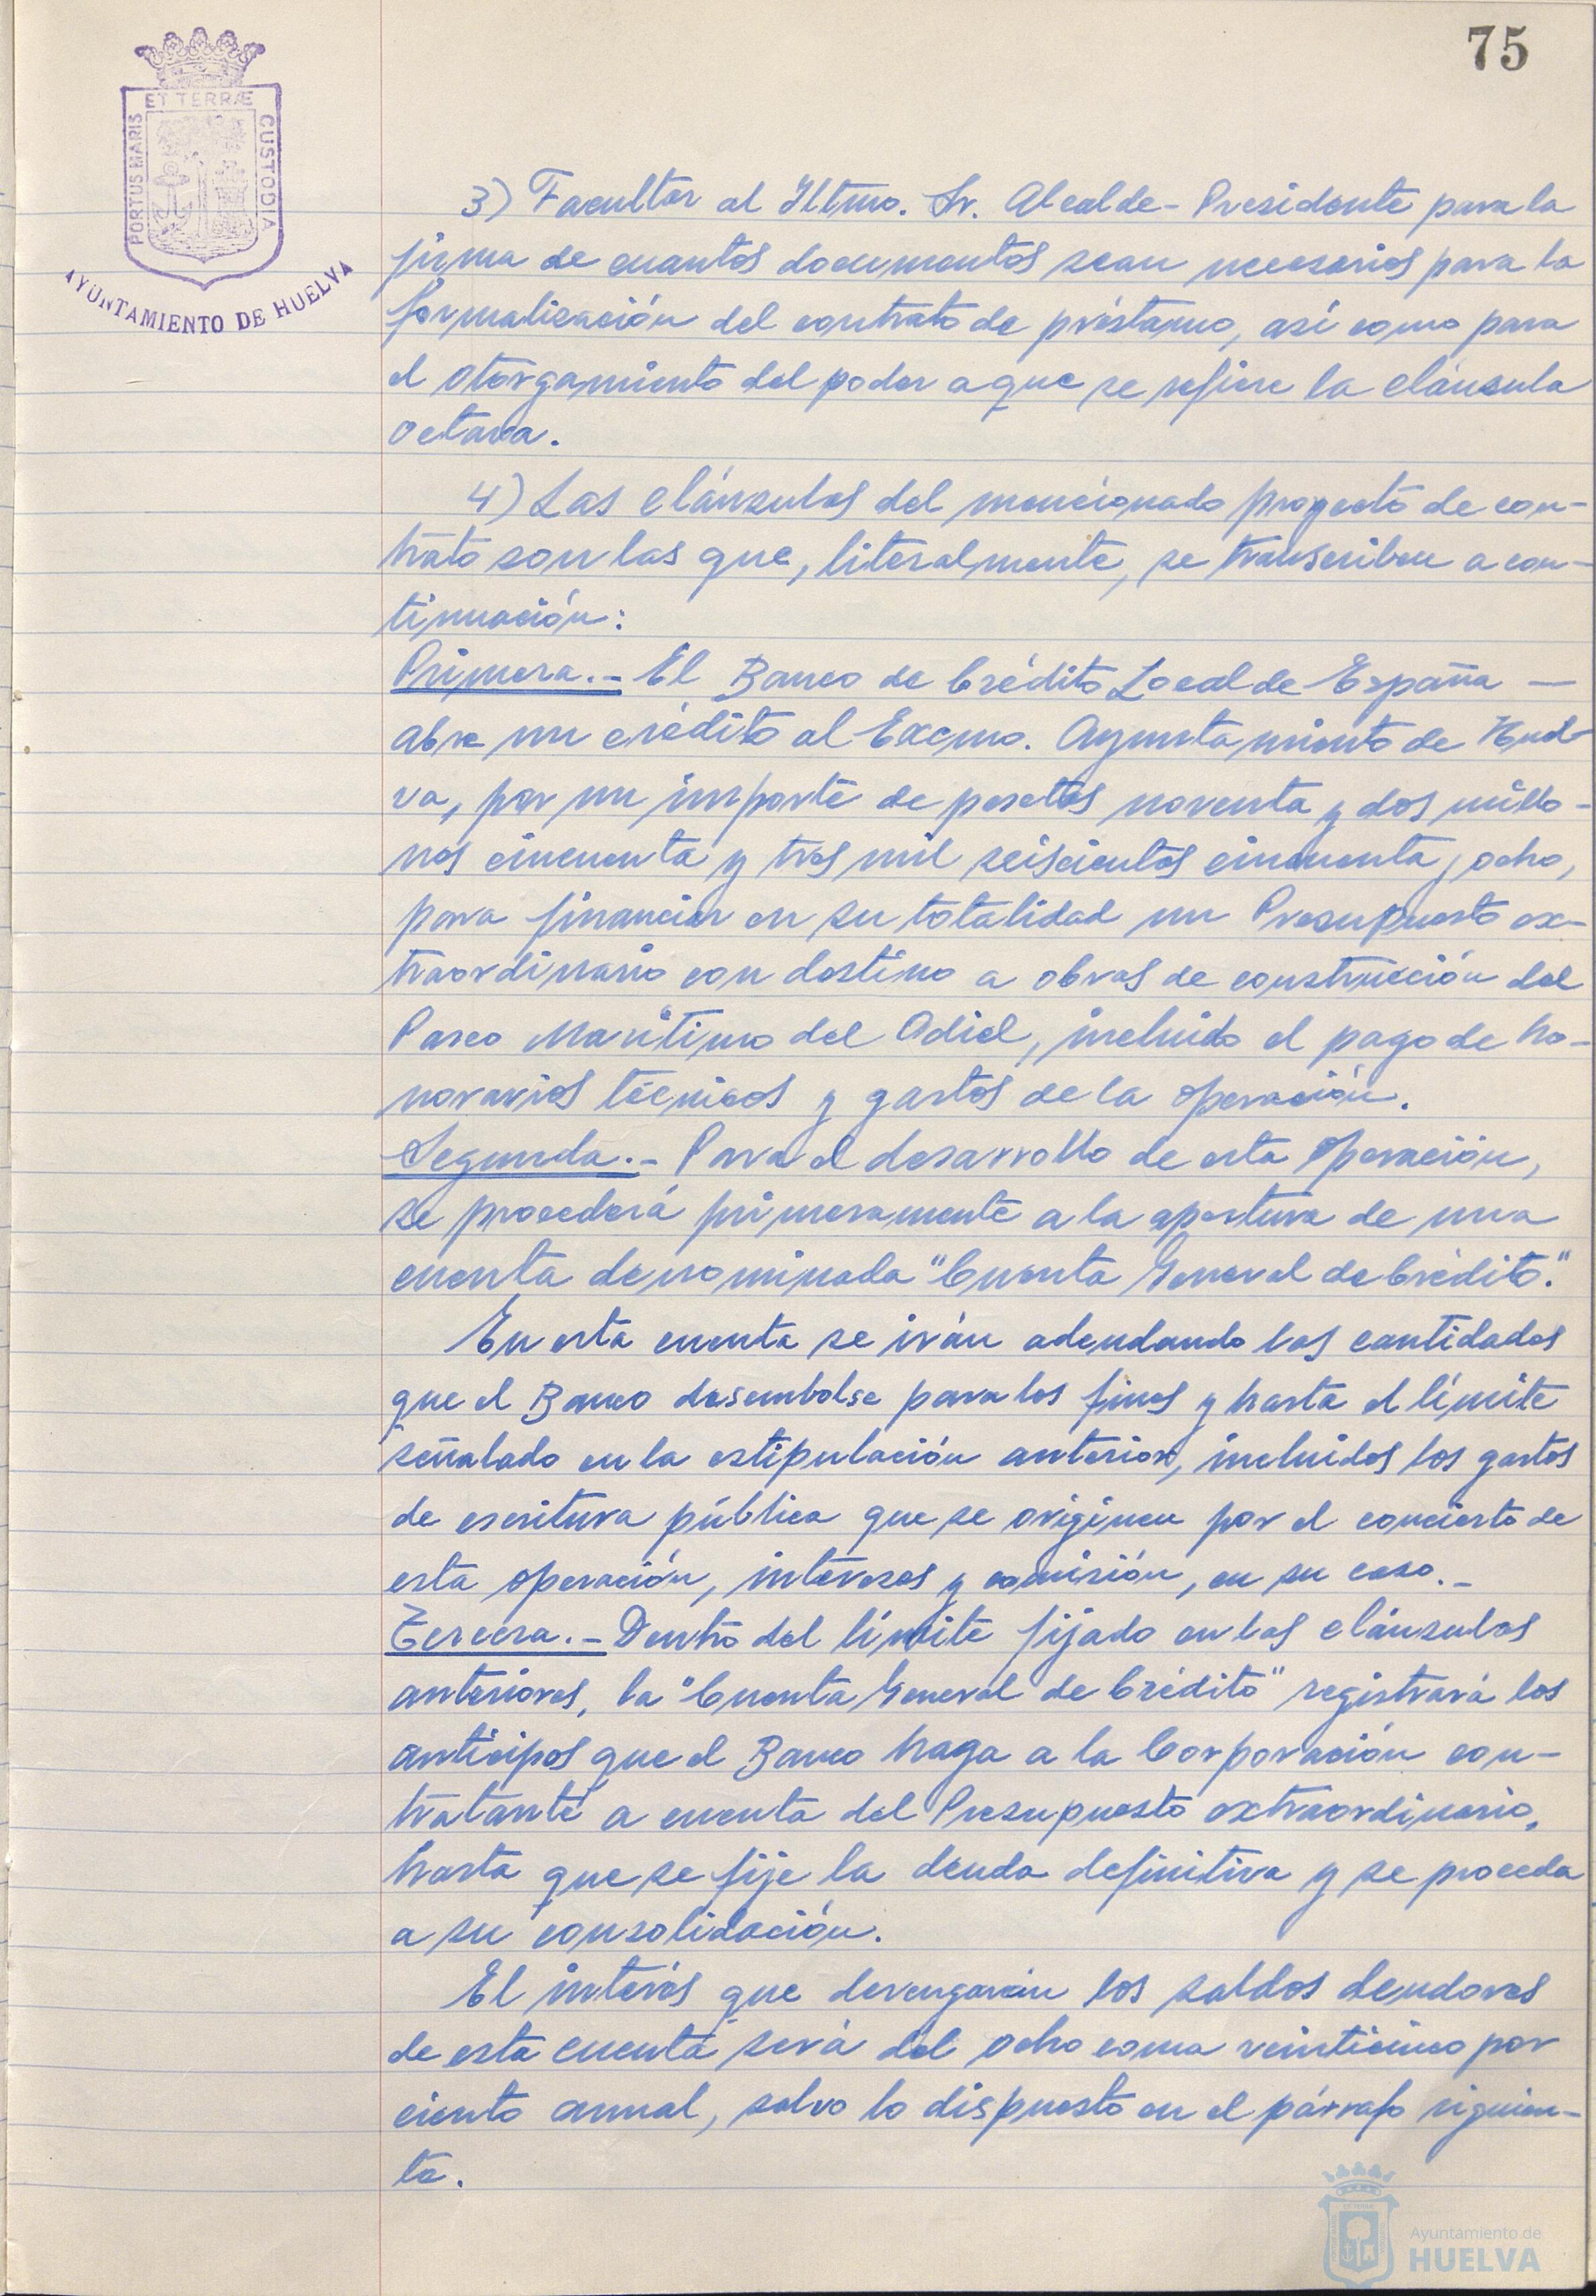 75
ET TERRÆ
PORTUS MARIS
CUSTODIA
AYUNTAMIENTO DE HUELVA
3) Facultar al Iltmo. Sr. Alcalde-Presidente para la
firma de cuantos documentos sean necesarios para la
formalización del contrato de préstamo, así como para
el otorgamiento del poder a que se refiere la cláusula
octava.
4) Las cláusulas del mencionado proyecto de con-
trato son las que, literalmente, se transcriben a con-
tinuación:
Primera.- El Banco de Crédito Local de España —
abre un crédito al Excmo. Ayuntamiento de Huel-
va, por un importe de pesetas noventa y dos millo-
nes cincuenta y tres mil seiscientos cincuenta y ocho,
para financiar en su totalidad un Presupuesto ex-
traordinario con destino a obras de construcción del
Paseo Marítimo del Odiel, incluido el pago de ho-
norarios técnicos y gastos de la operación.
Segunda.- Para el desarrollo de esta operación,
se procederá primeramente a la apertura de una
cuenta denominada "Cuenta General de Crédito."
En esta cuenta se irán adeudando las cantidades
que el Banco desembolse para los fines y hasta el límite
señalado en la estipulación anterior, incluidos los gastos
de escritura pública que se originen por el concierto de
esta operación, intereses y comisión, en su caso.-
Tercera.- Dentro del límite fijado en las cláusulas
anteriores, la "Cuenta General de Crédito" registrará los
anticipos que el Banco haga a la Corporación con-
tratante a cuenta del Presupuesto extraordinario,
hasta que se fije la deuda definitiva y se proceda
a su consolidación.
El interés que devengarán los saldos deudores
de esta cuenta será del ocho coma veinticinco por
ciento anual, salvo lo dispuesto en el párrafo siguien-
te.
Ayuntamiento de
HUELVA